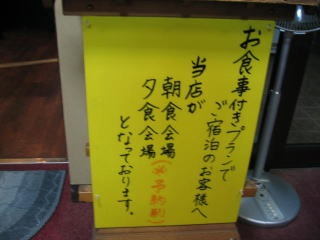 お食事付きプランで
ご宿泊のお客様へ
当店が
朝食会場
夕食会場(※予約制)
となっております。